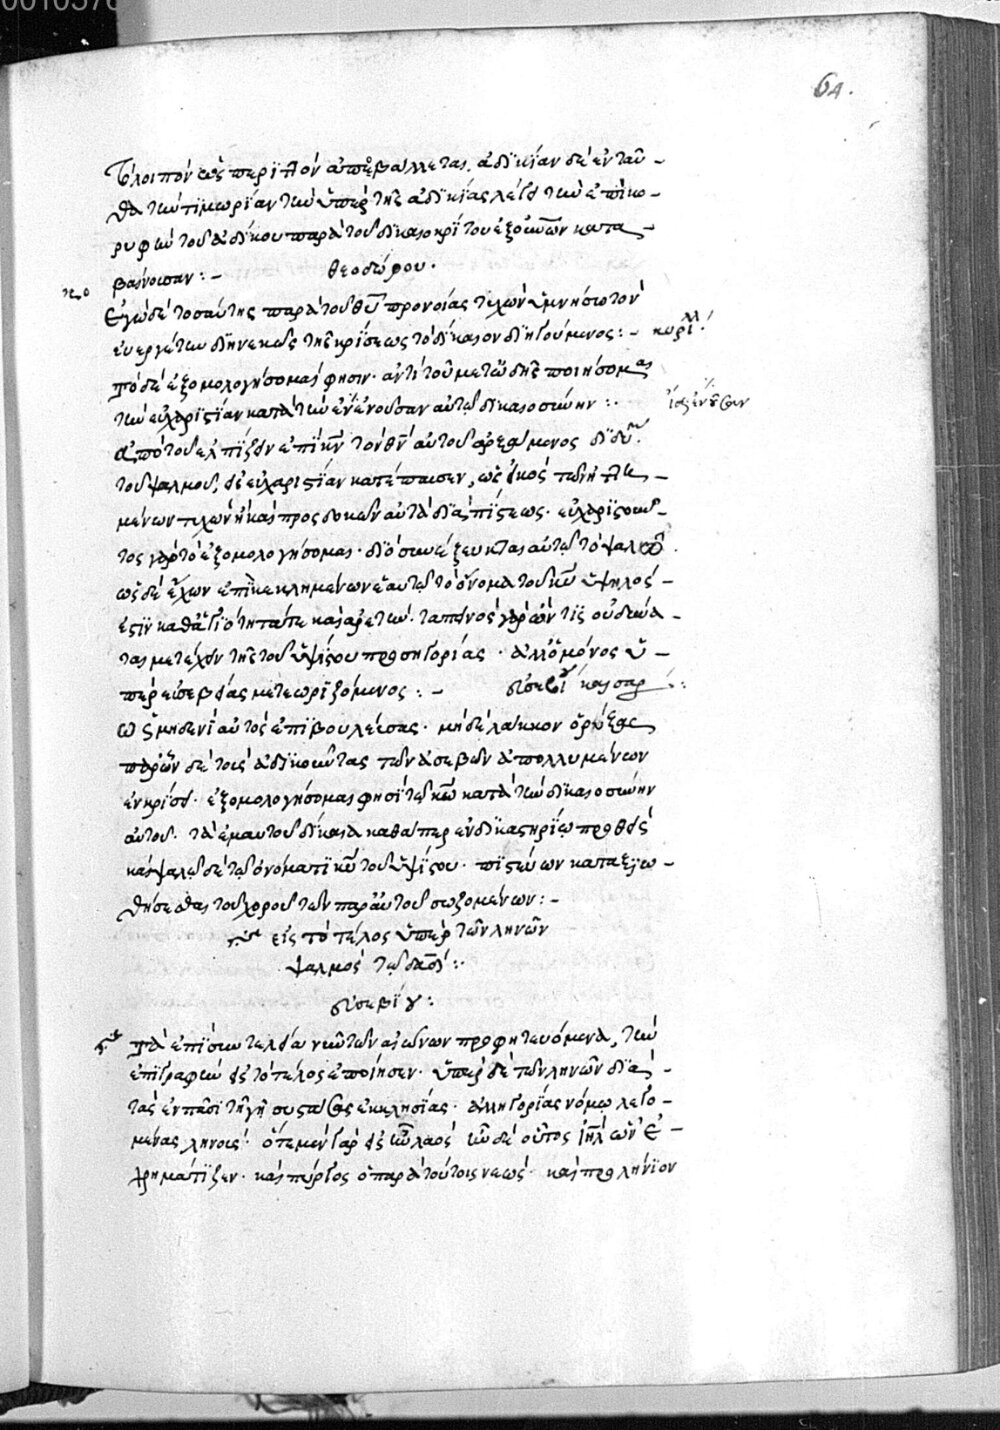 64.
τὸ λοιπὸν ὡς περιττὸν ἀποβάλλεται. ἀδικίαν δὲ ἐνταῦ-
θα τὴν τιμωρίαν τὴν ὑπὲρ τῆς ἀδικίας λέγει τὴν ἐπὶ κο-
ρυφὴν τοῦ ἀδίκου παρὰ τοῦ δικαιοκρίτου ἐξ οὐνῶν κατα-
βαίνουσαν :- θεοδώρου.
Ἐγὼ δὲ τοσαύτης παρὰ τοῦ θυ προνοίας τυχὼν ὑμνήσω τὸν
εὐεργέτην διηνεκῶς τῆς κρίσεως τὸ δίκαιον διηγούμενος :- κυρίλλ.
τὸ δὲ ἐξομολογήσομαί φησιν. ἀντὶ τοῦ μετ' ᾠδῆς ποιήσομαι
τὴν εὐχαριστίαν κατὰ τὴν ἐνένουσαν αὐτῷ δικαιοσύνην :.
ἀπὸ τοῦ ἐλπίζειν ἐπὶ κν τὸν θν αὐτοῦ ἀρξάμενος
τοῦ ψαλμοῦ, εἰς εὐχαριστίαν κατέπαυσεν, ὡς εἰκὸς τῶν
μένων τυχὼν ἢ καὶ προσδοκῶν αὐτὰ διὰ πίστεως. εὐχαριστοῦν-
τος γὰρ τὸ ἐξομολογήσομαι. διὸ συνέζευκται αὐτῷ τὸ ψαλῶ.
ὡς δὲ ἔχων ἐπικεκλημένον ἑαυτῷ τὸ ὄνομα τοῦ κυ ὑψηλός
ἐστιν καθ' ἁγιότητά τε καὶ ἀρετήν. ταπεινὸς γὰρ ὤν τις οὐ δύνα
ται μετέχειν τῆς τοῦ ὑψίστου προσηγορίας. ἀλλ' ὁ μόνος ὑ-
πὲρ εὐσεβείας μετεωριζόμενος :- εὐσεβίου καισαρ :
ὡς μηδενὶ αὐτὸς ἐπιβουλεύσας. μηδὲ λάκκον ὀρύξας
παρὼν δὲ τοῖς ἀδικοῦντας τῶν ἀσεβῶν ἀπολλυμένων
ἐν κρίσει. ἐξομολογήσομαι φησὶ τῷ κω κατὰ τὴν δικαιοσύνην
αὐτοῦ. τὰ ἐμαυτοῦ δίκαια καθάπερ ἐν δικαστηρίῳ προθεὶς
καὶ ψαλῶ δὲ τῷ ὀνόματι κυ τοῦ ὑψίστου. πιστεύων καταξιω-
θήσεσθαι τοῦ χοροῦ τῶν παρ' αὐτοῦ σωζομένων :-
εἰς τὸ τέλος ὑπὲρ τῶν ληνῶν
ψαλμὸς τῷ δαδ :.
εὐσεβίου :
Τὰ ἐπὶ συντελείᾳ τῶν αἰώνων προφητευόμενα, τὴν
ἐπιγραφὴν εἰς τὸ τέλος ἐποίησεν. ὑπὲρ δὲ τῶν ληνῶν διὰ
τὰς ἐν πάσῃ τῇ γῇ συστάσας ἐκκλησίας. ἀλληγορίας νόμῳ λεγο-
μένας ληνούς. ὅτε μὲν γὰρ εἷς ἦν λαός ἦν δὲ οὗτος ιηλ ὢν ἐ-
χρημάτιζεν. καὶ πύργος ὁ παρὰ τούτοις νεώς. καὶ προλήνιον